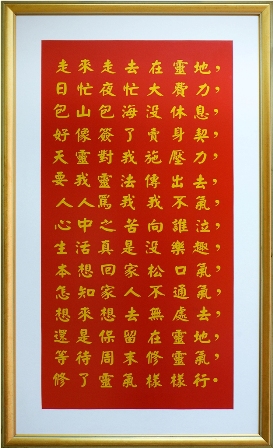 走來走去在靈地，
日忙夜忙大費力，
包山包海沒休息，
好像簽了賣身契，
天靈對我施壓力，
要我靈法傳出去，
人人罵我我不氣，
心中之苦向誰泣，
生活真是沒樂趣，
本想回家松口氣，
怎知家人不通氣，
想來想去無處去，
還是保留在靈地，
等待周末修靈氣，
修了靈氣樣樣行。